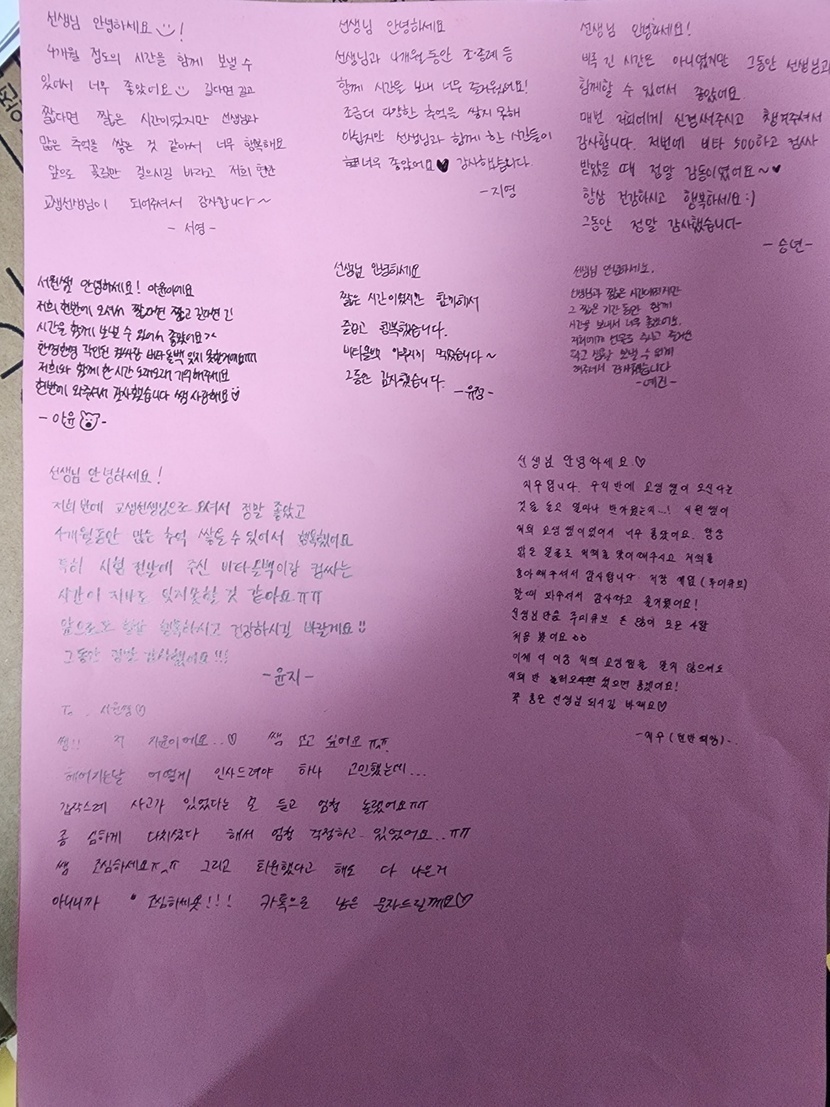 선생님 안녕하세요 !
4개월 정도의 시간을 함께 보낼 수
있어서 너무 좋았어요 길다면 길고
짧다면 짧은 시간이었지만 선생님과
많은 추억을 쌓은 것 같아서 너무 행복해요
앞으로 꽃길만 걸으시길 바라고 저희 한반
교생선생님이 되어주셔서 감사합니다 ~
- 서영 -
선생님 안녕하세요
선생님과 4개월 동안 조·종례 등
함께 시간을 보내 너무 즐거웠어요!
조금더 다양한 추억을 쌓지 못해
아쉽지만 선생님과 함께 한 시간들이
너무 좋았어요♥ 감사했습니다.
- 지영
선생님 안녕하세요!
비록 긴 시간은 아니였지만 그동안 선생님과
함께할 수 있어서 좋았어요.
매번 저희에게 신경써주시고 챙겨주셔서
감사합니다. 저번에 비타 500하고 컴싸
받았을 때 정말 감동이였어요~♥
항상 건강하시고 행복하세요:)
그동안 정말 감사했습니다-
- 승년 -
서원쌤 안녕하세요! 아윤이에요
저희 한반에 오셔서 짧다면 짧고 길다면 긴
시간을 함께 보낼 수 있어서 좋았어요^^
각인된 컴싸랑 비타올백 잊지 못할거에요ㅠㅠ
저희와 함께 한 시간 오래오래 기억해주세요
한반에 와주셔서 감사했습니다 쌤 사랑해요
- 아윤 -
선생님 안녕하세요
짧은 시간이었지만 함께해서
즐겁고 행복했습니다.
비타올백 멋졌습니다 ~
그동안 감사했습니다.
- 유정 -
선생님 안녕하세요.
선생님과 짧은 시간이었지만
그 짧은 기간 동안 함께
시간을 보내서 너무 좋았어요.
저희에게 주시고 즐거운
학교 생활 보낼 수 있게
해주셔서 감사했습니다
- 예진 -
선생님 안녕하세요!
저희 반에 교생선생님으로 오셔서 정말 좋았고
4개월동안 많은 추억 쌓을 수 있어서 행복했어요
특히 시험 전날에 주신 비타올백이랑 컴싸는
시간이 지나도 잊지못할 것 같아요ㅠㅠ
앞으로도 항상 행복하시고 건강하시길 바랄게요!!
그동안 정말 감사했어요!!!
- 윤지 -
선생님 안녕하세요.♡
지우입니다. 우리 반에 교생 쌤이 오신다는
것을 듣고 얼마나 반가웠는지...! 서원 쌤이
저희 교생 쌤이셨어서 너무 좋았어요. 항상
밝은 얼굴로 저희를 맞이해주시고 저희를
좋아해주셔서 감사합니다. 직장 체험 (투미큐브)
할때 와주셔서 감사하고 즐거웠어요!
선생님만큼 투미큐브 돈 많이 모은 사람
처음 봤어요 ㅎㅎ
이제 더 이상 저희 교생쌤을 맡지 않으셔도
저희 반 놀러오셨으면 좋겠어요!
꼭 좋은 선생님 되시길 바래요♡
- 지우 (한반 회장) -
To. 서원쌤♡
쌤!! 저 지윤이에요..♡ 쌤 보고 싶어요 ㅠㅠ
헤어지는날 어떻게 인사드려야 하나 고민했는데...
갑작스레 사고가 있었다는 말 듣고 엄청 놀랬어요ㅠㅠ
좀 심하게 다치셨다 해서 엄청 걱정하고 있었어요..ㅠㅠ
쌤 조심하세요ㅠ_ㅠ 그리고 퇴원했다고 해도 다 나은거
아니니까 조심하세욧!!! 카톡으로 남은 문자드릴께요♡